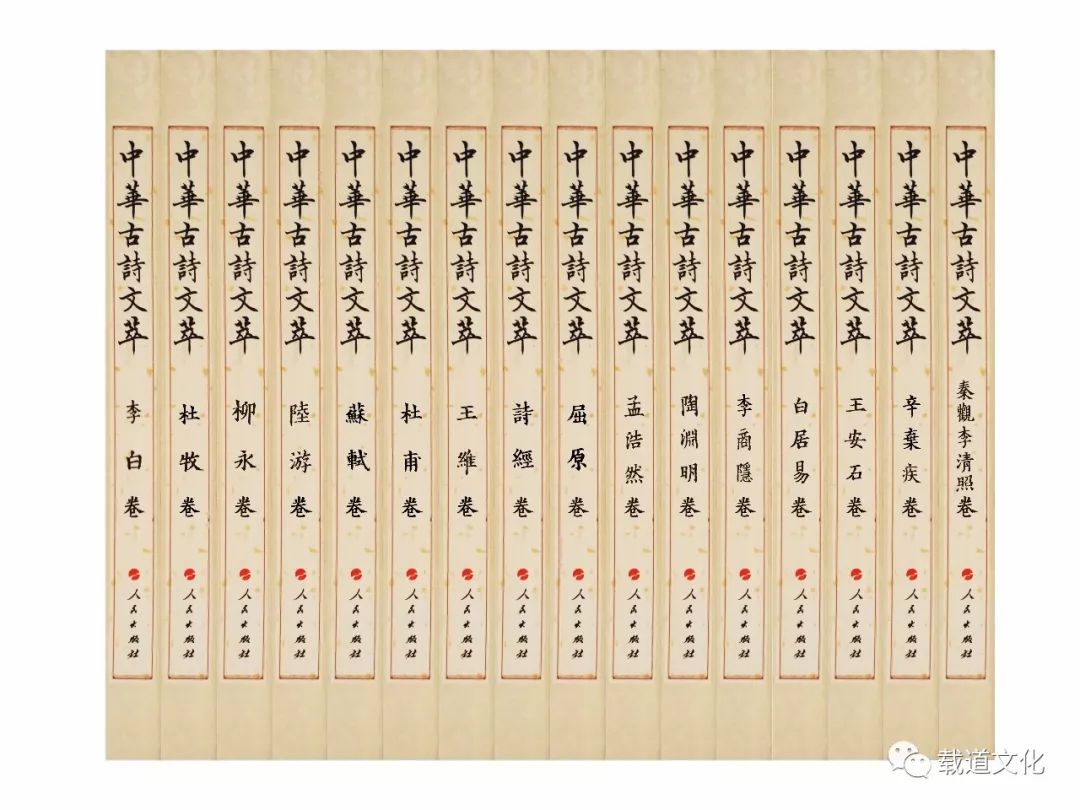 中華古詩文萃
李白卷
人民出版社
中華古詩文萃
杜牧卷
人民出版社
中華古詩文萃
柳永卷
人民出版社
中華古詩文萃
陸游卷
人民出版社
中華古詩文萃
蘇軾卷
人民出版社
中華古詩文萃
杜甫卷
人民出版社
中華古詩文萃
王維卷
人民出版社
中華古詩文萃
詩經卷
人民出版社
中華古詩文萃
屈原卷
人民出版社
中華古詩文萃
孟浩然卷
人民出版社
中華古詩文萃
陶淵明卷
人民出版社
中華古詩文萃
李商隱卷
人民出版社
中華古詩文萃
白居易卷
人民出版社
中華古詩文萃
王安石卷
人民出版社
中華古詩文萃
辛棄疾卷
人民出版社
中華古詩文萃
秦觀李清照卷
人民出版社
载道文化